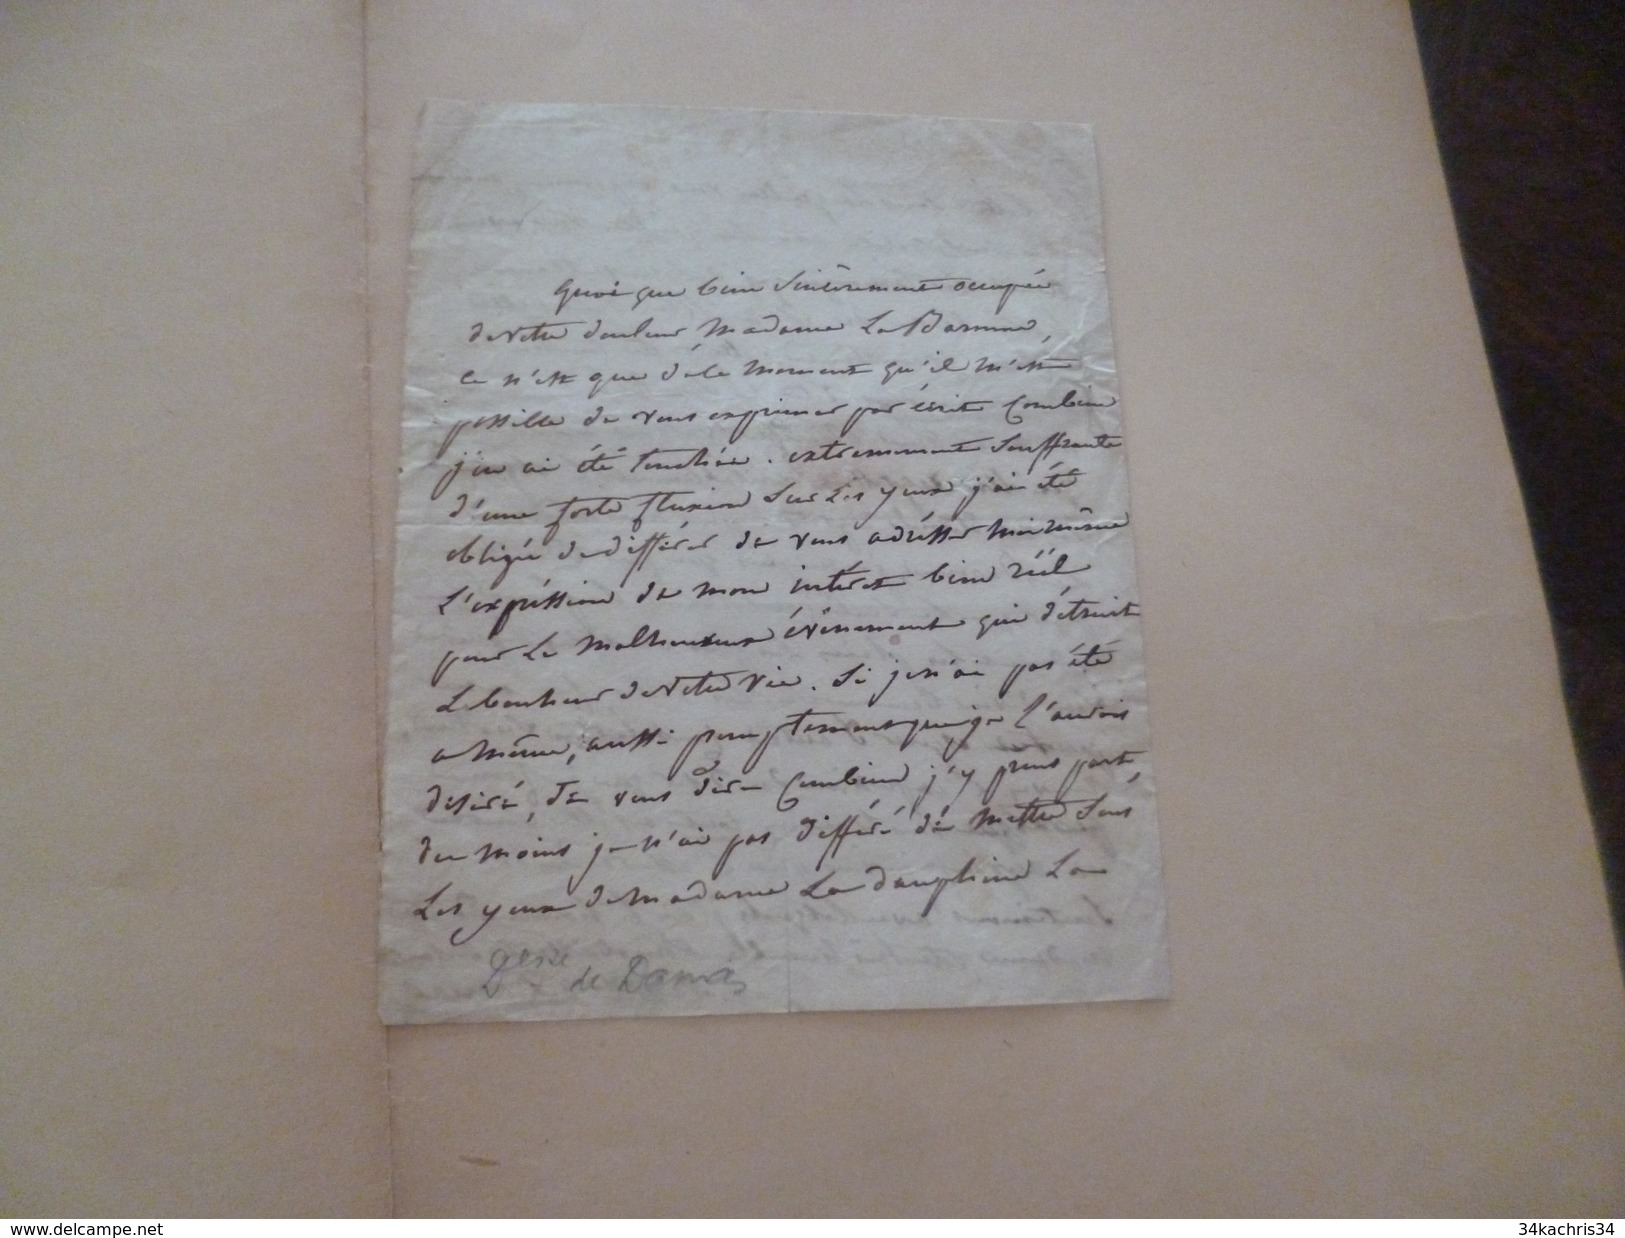 quoi que bien sincèrement occupée
de votre douleur Madame La Baronne,
ce n'est que dèce moment qu'il m'est
possible de vous exprimer par écrit Combien
j'en ai été touchée. extremement souffrante
d'une forte fluxion sur les yeux j'ai été
obligée de différer de vous adrésser moi même
L'expréssion de mon intérêt bien réél
pour le malheureux évènement qui détruit
le bonheur de votre vie. Si je n'ai pas été
a même, aussi promptement que je l'aurois
desiré, de vous dire Combien j'y prens part,
du moins je n'ai pas différé de mettre sous
Les yeux de Madame La dauphine La
Desse de Damas
www.delcampe.net
34kachris34